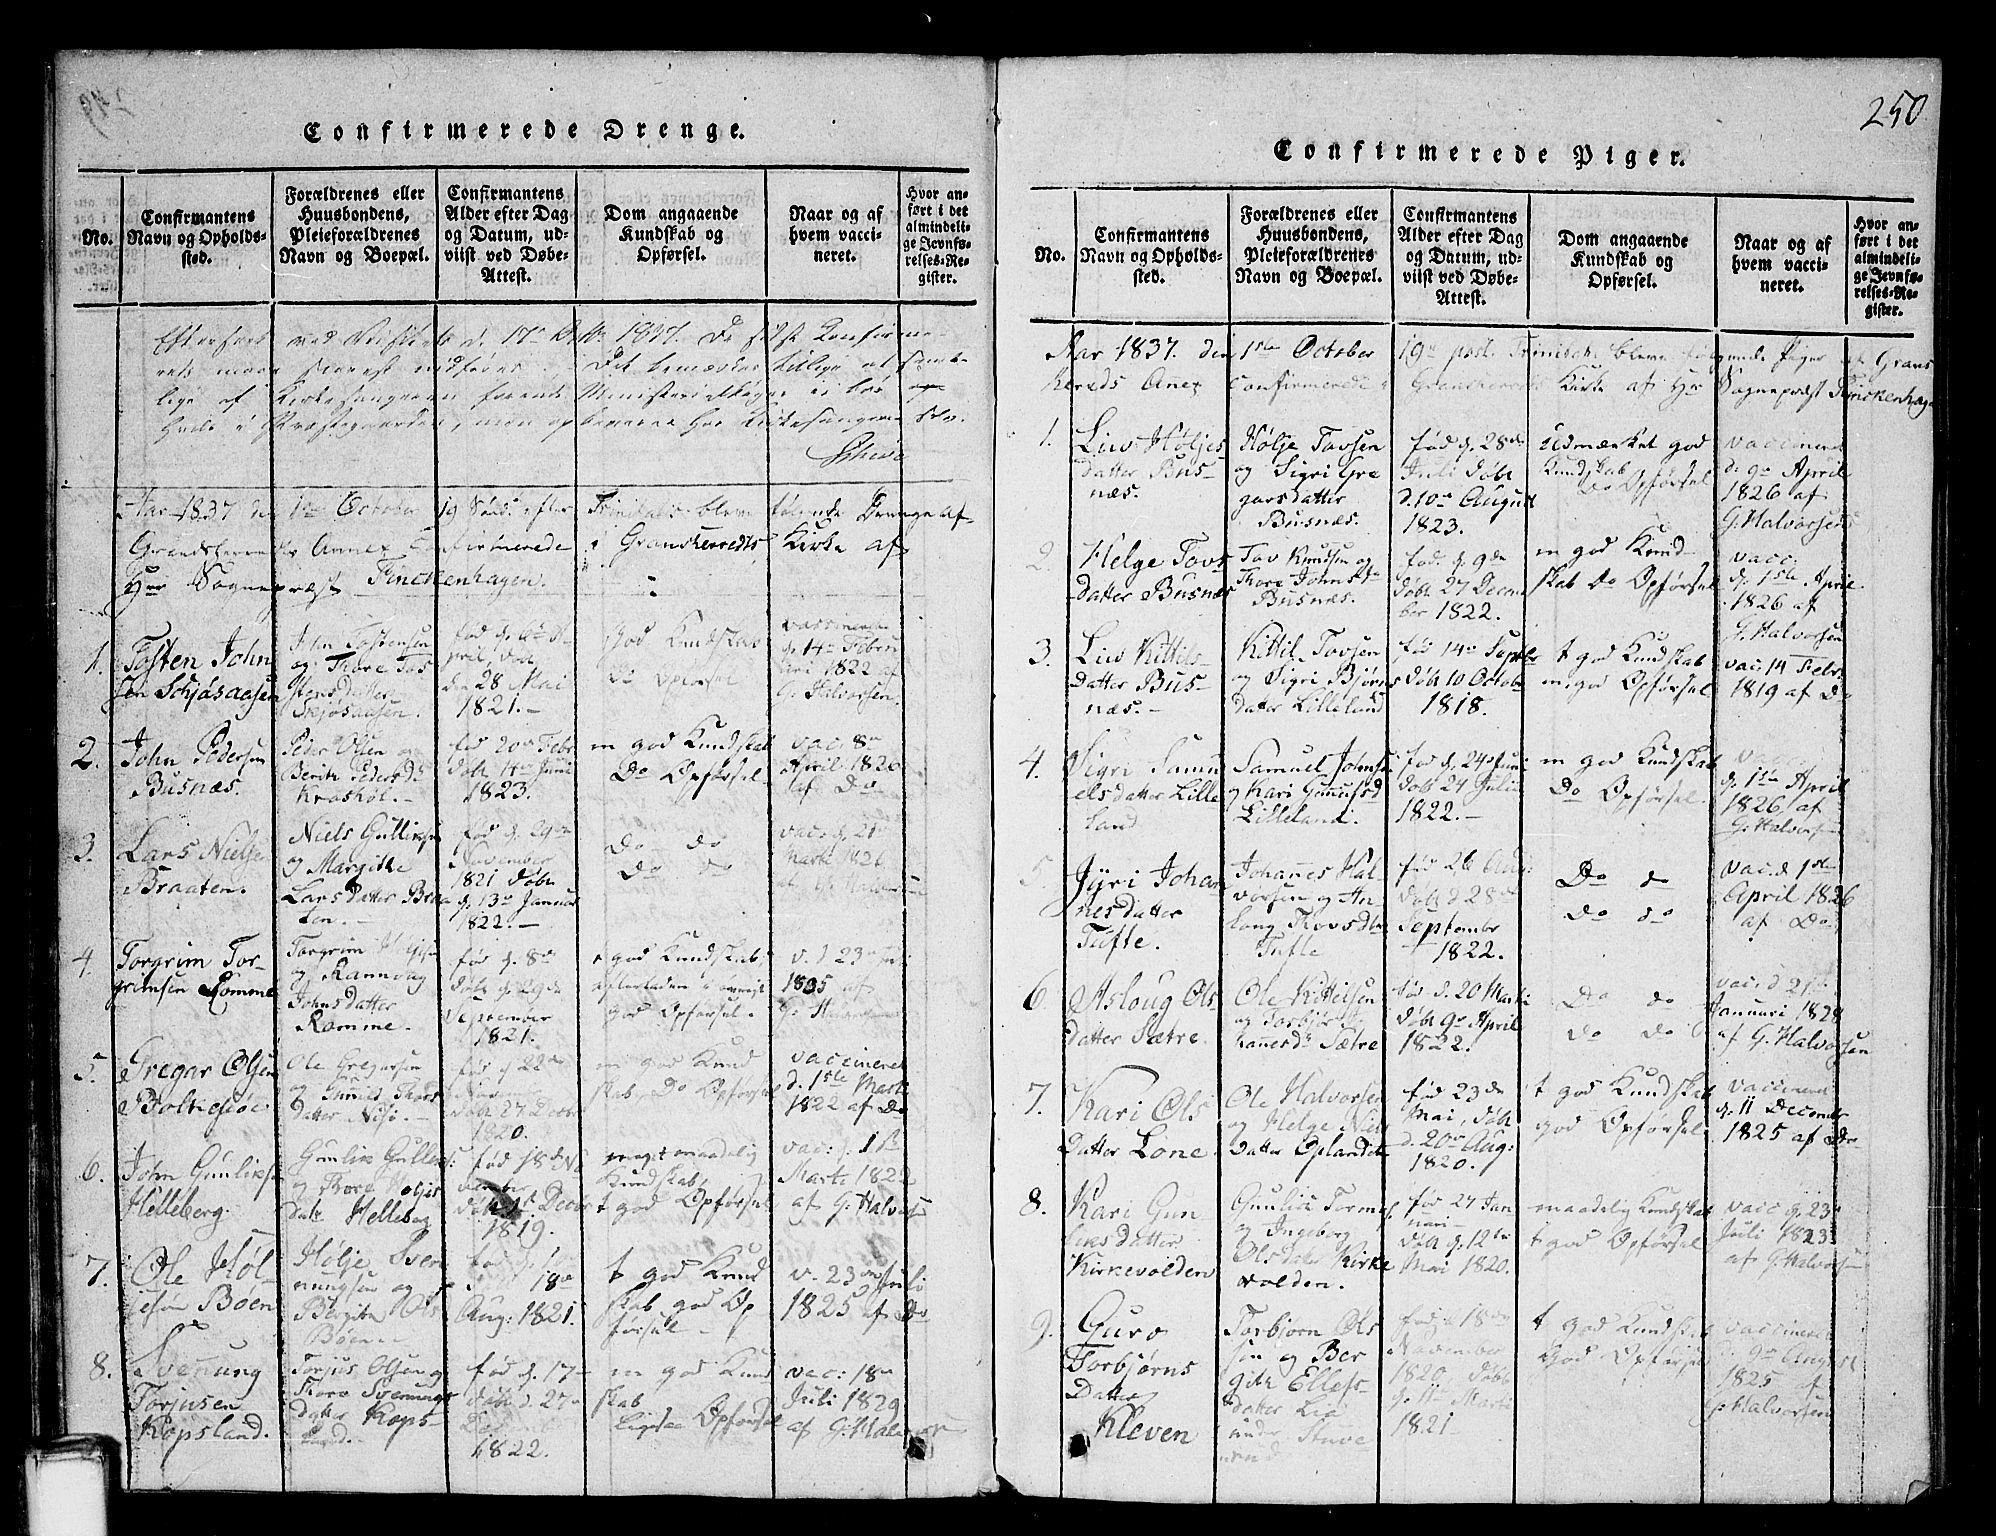 249
Confirmerede Drenge.
No.
Confirmantens
Navn og Opholds-
sted.
Forældrenes eller
Huusbondens,
Pleieforældrenes
Navn og Boepæl.
Confirmantens
Alder efter Dag
og Datum, ud-
viist ved Døbe-
Attest.
Dom angaaende
Kundskab og
Opførsel.
Naar og af
hvem vacci-
neret.
Hvor an-
ført i det
almindeli-
ge Jevnfø-
relses-Re-
gister.
Efterseet ved 17de 1837. De sidst Confirme-
rede maae
lige af Kirkesangeren førende Ministerialbog
i Præstegaarden, men hos Kirkesangeren selv.
Aar 1837 den 1ste October 19 Sønd: efter Trinitatis bleve følgende Drenge af
Annex Confirmerede i Gransherreds Kirke af
Hrr Sognepræst Finckenhagen.
1.
Tosten John
sen Skjøsaasen
John Tostensen
og Thore Tos
tensdatter
Skjøsaasen.
fød d. 6te A-
pril, døbt
den 28 Mai
1821.
God Kundskab
do Opførsel
vaccineret
d. 14de Febru
ari 1822 af
G. Halvorsen.
2.
John Pedersen
Busnæs.
Peder Olsen og
Berith Pedersd:
Kraskøl.
fød 20de Febr
døbt 14de Juni
1823.
m god Kundskab
Do Opførsel
vac: 8de
April 1826
af Do
3.
Lars Nielsen
Braaten.
Niels Gulliksen
og Margithe
Larsdatter Braa
ten.
fød d. 29de
November
1821 døbt
d. 13de Januar
1822.
Do do
Do do
vac: d. 21de
Marti 1826
af G. Halvorsen
4.
Torgrim Tor-
grimsen Romme
Torgrim
og Rannoug
Johnsdatter
Romme.
fød d. 8de
døbt d. 29de
September
1821.
t god Kundskab,
god Opførsel.
v. d 23de Juli
1835 af
G. Halvorsen
5.
Gregar Olsen
Boltkesjøe
Ole Gregersen
og
datter
fød d 22de
Nov:
døbt 27 Decbr
1820.
m god Kund
skab, Do Opførsel
vaccineret
d. 1ste Marti
1822 af Do
6.
John Gunliks:
Helleberg.
Gunlik Gullecs:
og Thore Høljes
datr Helleberg
fød 18de No
vember
døbt Decbr
1819.
meget maadelig
Kundskab,
t god Opførsel
vac: d. 1ste
Marti 1822
af G. Halvors
7.
Ole Høl-
jesøn Bøen
Hølje Sven
nungsen og
Bergith Ols
Bøen
fød d.
18de
Aug: 1821.
t god Kund
skab god Op
førsel
v. 23de Juli
1825 af Do
8.
Svenung
Torjusen
Kopsland.
Torjus Olsen og
Thore Svennungs
datter Kops-
land.
fød d. 17-
døbt d. 27de
1822.
m god Kund
skab
Opførsel
vac: 18de
Juli 1829
af G. Halvorsen
250
Confirmerede Piger.
No.
Confirmantens
Navn og Opholds-
sted.
Forældrenes eller
Huusbondens,
Pleieforældrenes
Navn og Boepæl.
Confirmantens
Alder efter Dag
og Datum, ud-
viist ved Døbe-
Attest.
Dom angaaende
Kundskab og
Opførsel.
Naar og af
hvem vacci-
neret.
Hvor an-
ført i det
almindeli-
ge Jevnfø-
relses-Re-
gister.
Aar 1837. den 1ste October 19de post. Trinitat: bleve følgende Piger af Grans
herreds Anex Confirmerede i Gransherreds Kirke af Hrr Sognepræst Finckenhagen
1.
Liv Høljes
datter Bus-
næs.
Hølje Tovsen
og Sigri Gre
garsdatter
Busnæs.
fød d. 28de
Juli døbt
d. 10de August
1823.
Udmærket god
Kundskab
Do Opførsel
vaccineret
d. 9de April
1826 af
G. Halvorsen
2
Helge Tovs
datter Busnæs
Tov Knudsen og
Thore Johnsdr
Busnæs.
fød. d. 9de
døbt 27 Decem
ber 1822.
m god Kund-
skab Do Opførsel
vacc:
d. 1ste April
1826 af
G. Halvorsen
3.
Liv Kittils-
datter Bus-
næs.
Kittil Tovsen
og Sigri Bjørns
datter Lilleland
fød 14de Septbr
døbt 10 Octobr
1818.
t god Kundskab
m.god Opførsel
vac: 14 Febr
1819 af Do
4.
Sigri Samu
elsdatter Lille
land
Samuel Johns:
og Kari Gunnufsd
Lilleland.
fød d. 24de Juni
døbt 24 Julii
1822.
m god Kundskab
Do Opførsel.
d. 1ste April
1826 af
G. Halvorsen
5
Jyri Johan
nesdatter
Tufte.
Johannes Hal-
vorsen og As-
loug Tovsdtr
Tufte
fød 26 Aug:
døbt d 28de
Septembr
1822.
Do do
do do
vac. d 1ste
April 1826
af Do
6
Asloug Ols
datter Sætre
Ole Kittilsen
og Torbjør
hannesdr Sætre
fød d. 20 Marti
døbt 9de April
1822.
Do do
do do
vac. d 21de
Januari 1828
af G. Halvorsen
7.
Kari Ols
datter Løne.
Ole Halvorsen
og Helge Niels
datter Oplandet
fød 23de
Mai, døbt
d. 20de Aug:
1820.
t god Kundskab
god Opførsel.
vaccineret
d. 11 December
1825 af Do
8.
Kari Gun
leiksdatter
Kirkevolden
Gunlik Tormo
og Ingeborg
Olsdatter Kirke
volden.
fød 27 Jan
uari
døbt d. 12te
Mai 1820.
maadelig Kundskab
t god Opførsel
vacc d. 23de
Juli 1823
af G. Halvorsen
9.
Guro
Torbjørns
Datter
Kleven
Torbjørn Ols
søn og Ber
gith Ellefs-
datter Lia
under Stuve
rend
fød d 18de
November
1820, døbt
d. 11te Marti
1821.
t god Kundskab
God Opførsel
vaccineret
d. 9de August
1825 af
G. Halvorsen